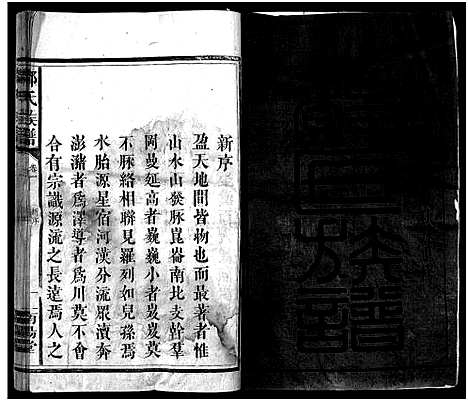 新序
盈天地間皆物也而最著者惟
山水山發脈崑崙南北支幹羣
岡蔓延高者巍巍小者岌岌莫
不脈絡相聯見羅列如兒孫焉
水胎源星宿河漢分流眾瀆奔
澎潴者爲澤導者爲川莫不會
合有宗識源流之長遠焉人之
鄧氏族譜
卷一
新序
南陽堂
氏族譜